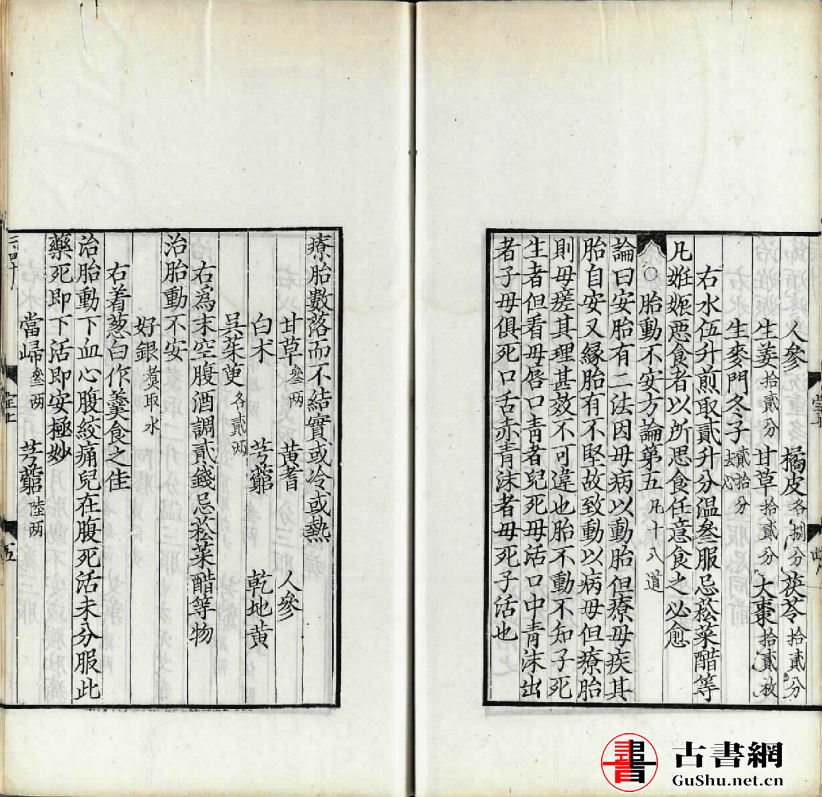 人參　橘皮各捌分　茯苓拾貳分
生姜拾貳分　甘草拾貳分　大棗拾貳枚
生麥門冬子貳拾分去心
右水伍升煎取貳升分溫叄服忌菘菜醋等
凡姙娠惡食者以所思食任意食之必愈
〇胎動不安方論第五凡十八道
論曰安胎有二法因母病以動胎但療母疾其
胎自安又緣胎有不堅故致動以病母但療胎
則母瘥其理甚效不可違也胎不動不知子死
生者但看母唇口青者兒死母活口中青沫出
者子母俱死口舌赤青沫者母死子活也
療胎數落而不結實或冷或熱
甘草叄兩　黃耆　人參
白术　芎藭　乾地黃
吳茱萸各貳兩
右爲末空腹酒調貳錢忌菘菜醋等物
治胎動不安
好銀煑取水
右着葱白作羹食之佳
治胎動下血心腹絞痛兒在腹死活未分服此
藥死即下活即安極妙
當歸叄兩　芎藭陸兩
五
古書網
GuShu.net.cn